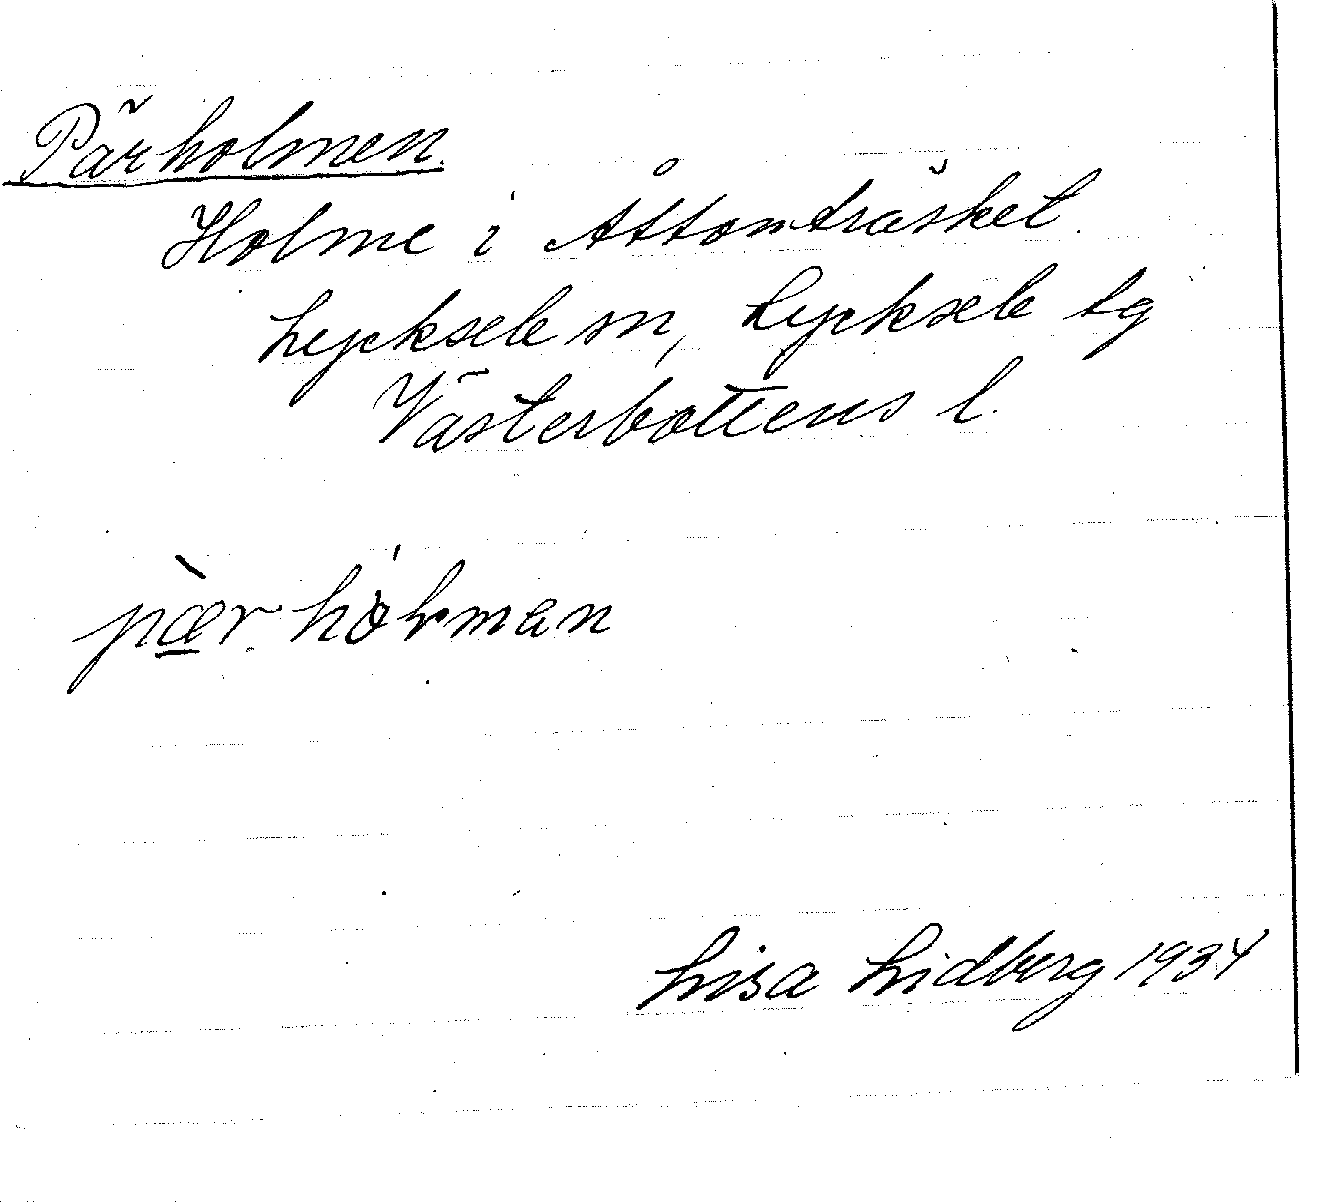 Pärholmen.
Holme i Åttonträsket.
Lycksele sn, Lycksele tg
Västerbottens l.
pær hòlmen
Lisa Lidberg 1934